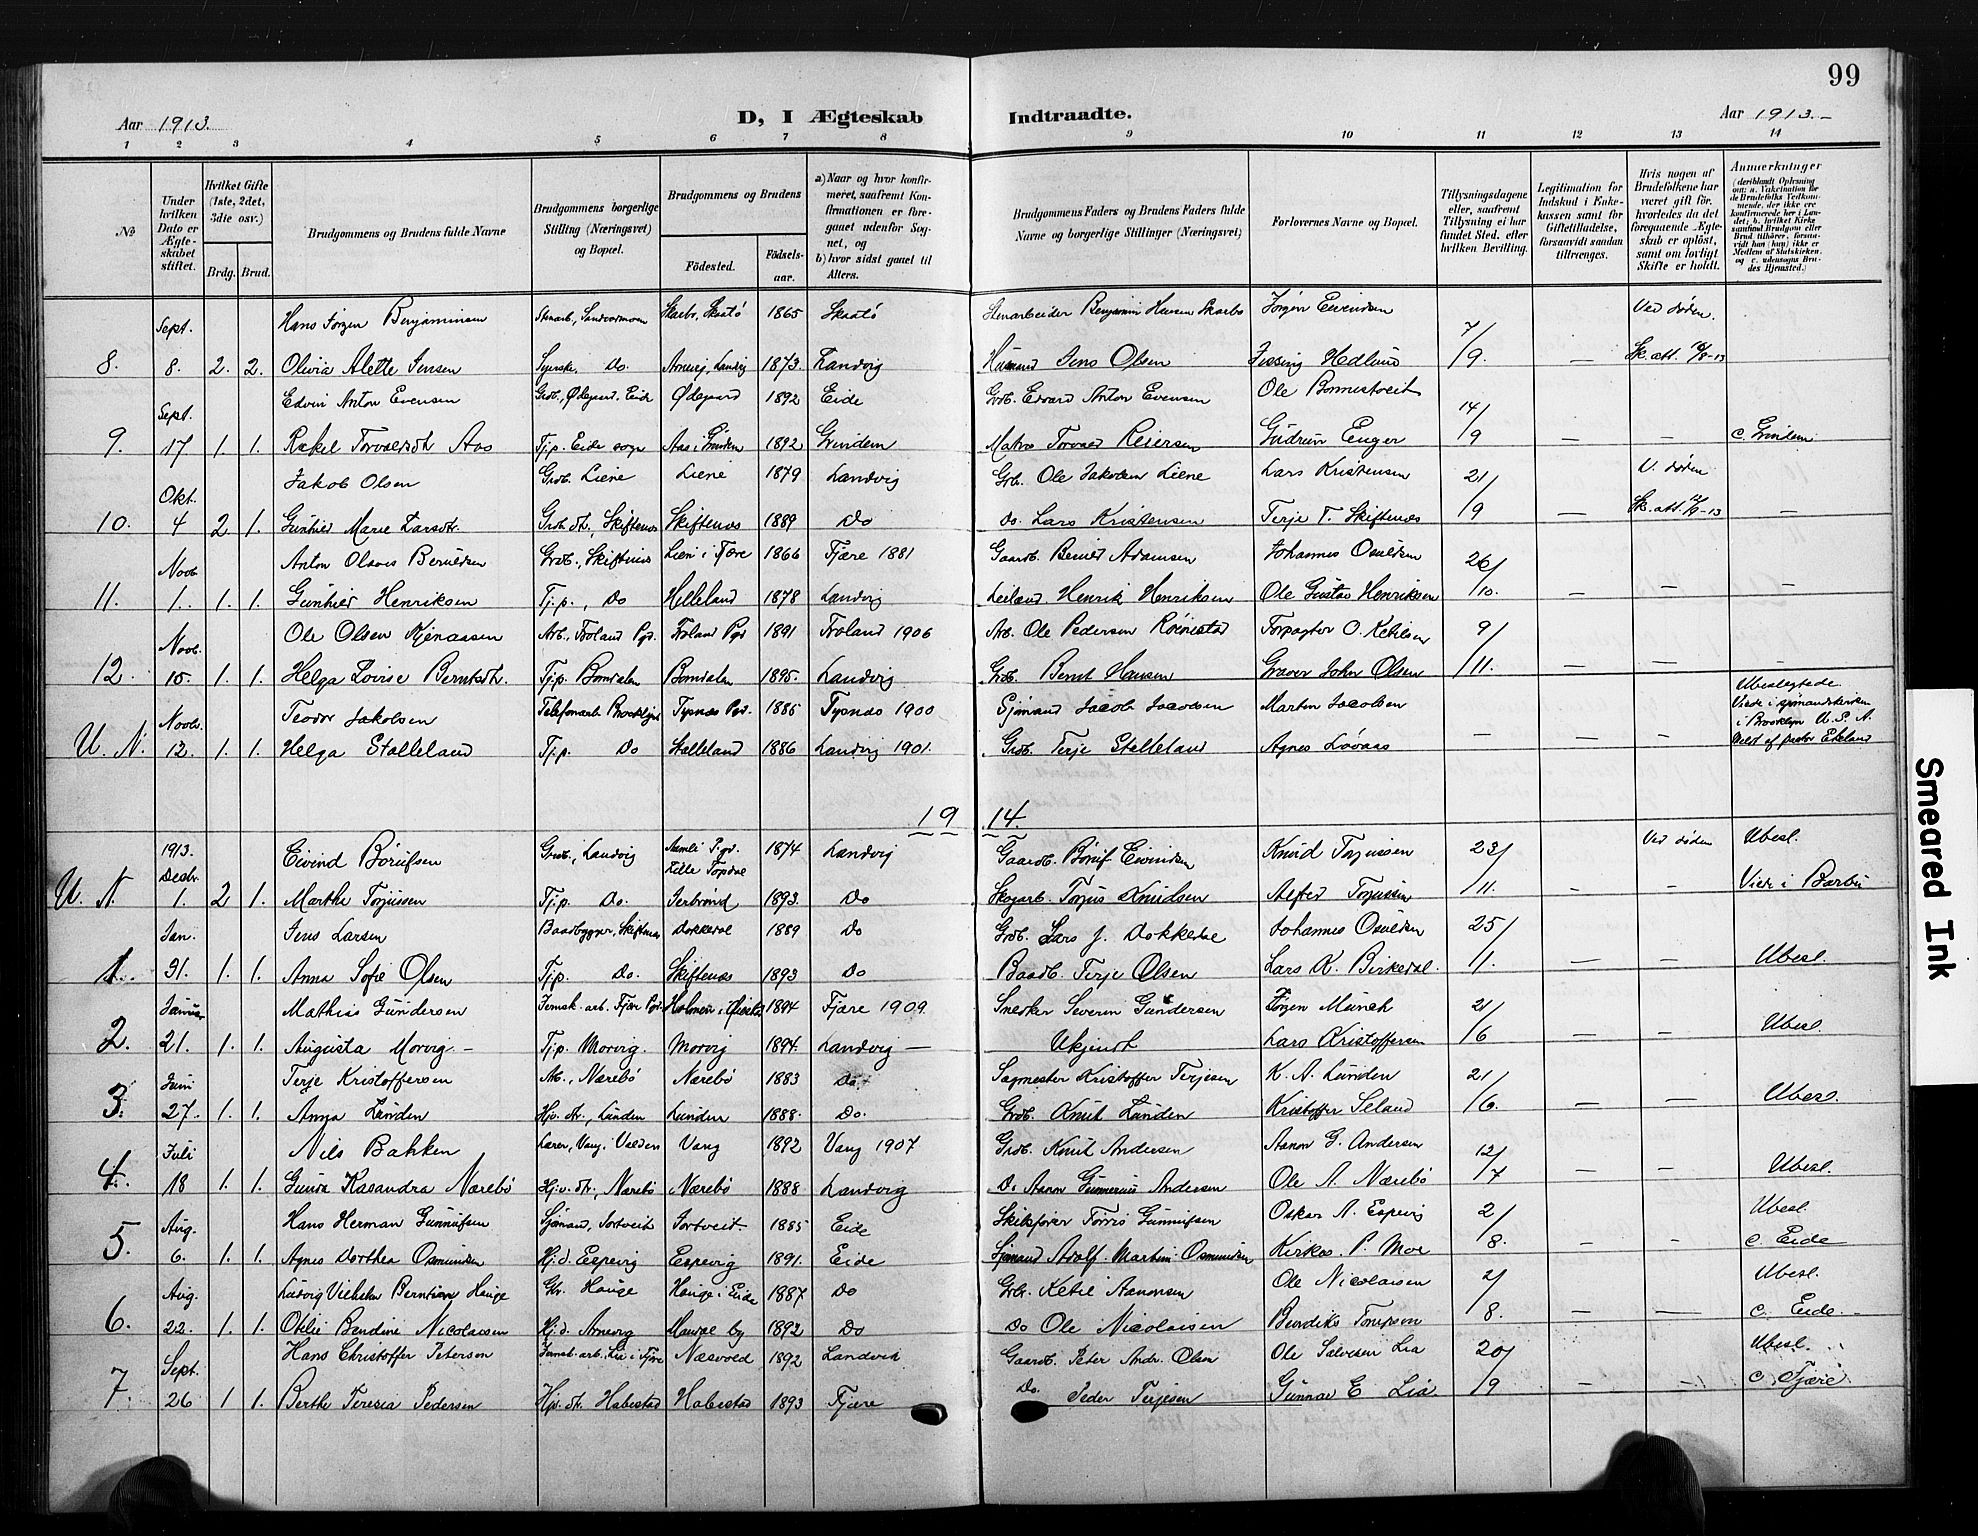 99
Aar 1913.
D, I Ægteskab
Indtraadte.
Aar 1913.-
1 2 3 4 5 6 7 8 9 10 11 12 13 14
No
Under hvilken Dato er Ægteskabet stiftet.
Hvilket Gifte (1ste, 2det, 3dte osv.)
Brdg. Brud.
Brudgommens og Brudens fulde Navne
Brudgommens borgerlige Stilling (Næringsvei) og Bopæl.
Brudgommens og Brudens
Fødested.
Fødselsaar.
a) Naar og hvor konfirmeret, saafremt Konfirmationen er foregaaet udenfor Sognet, og
b) hvor sidst gaaet til Alters.
Brudgommens Faders og Brudens Faders fulde Navne og borgerlige Stillinger (Næringsvei)
Forlovernes Navne og Bopæl.
Tillysningsdagene eller, saafremt Tillysning ei har fundet Sted, efter hvilken Bevilling.
Legitimation for Indskud i Enkekassen samt for Giftetilladelse, forsaavidt saadan tiltrænges.
Hvis nogen af Brudefolkene har været gift før, hvorledes da det foregaaende Ægteskab er opløst, samt om lovligt Skifte er holdt.
Anmerkninger
(deriblandt Oplysning om: a. Vaccination for de Brudefolks Vedkommende, der ikke ere konfirmerede her i Landet; b. hvilket Kirkesamfund Brudgom eller Brud tilhører, forsaavidt han (hun) ikke er Medlem af Statskirken, og c. udensogns Brudes Hjemsted.)
Sept. Hans Jørgen Benjaminsen Stenarb., 1865 Skaatø Stenarbeider Benjamin Hansen Jørgen Eivindsen 7/ Ved døden.
8. 8. 2. 2. Olivia Alette Jensen Do. Landvig 1873. Landvig Jens Olsen Hedlund /9. — Sk. att.
Sept. Edvin Anton Evensen Grdb. Ødegaard, Eide Ødegaard 1892 Eide Grdb. Edvard Anton Evensen Ole Bonnestveit 14/
9. 17 1. 1. Rakel Torvaldsdt. Aas Tj.p. Eide sogn 1892 Torvald Reiersen Gudrun Enger /9 — — c.
Okt. Jakob Olsen Grdb. Liene Liene 1879 Landvig Grb. Ole Jakobsen Liene Lars Kristensen 21/ V. døden
10. 4 2. 1. Gunhild Marie Larsdtr. Skiftenes Skiftenes 1889 Do Do. Lars Kristensen Terje T. Skiftenes /9 — Sk. att. —
Novb. Anton Olaves Berulfsen Grdb., Skiftenes 1866 Fjære 1881 Gaardb. Adamsen Johannes Osuldsen 26/
11. 1. 1. 1. Gunhild Henriksen Tj.p., Do Helleland 1878 Landvig Henrik Henriksen Ole Gustav Henriksen /10. — — —
Novb. Ole Olsen Arb., Froland Pgd. Froland Pgd 1891 Froland 1906 Arb. Ole Pedersen O. Ketilsen 9/
12. 15. 1. 1. Helga Lovise Berntsdtr. Tj.p. Bomdalen Bomdalen 1895. Landvig Grdb. Bernt Hansen Graver John Olsen /11. — — —
Novb. Teodor Jakobsen Brooklyn Tysnes Pgd. 1885 Tysnes 1900 Sjømand Jacob Jacobsen Martin Jacobsen Ubeslegtede. Viede i sjømandskirken
U. N. 12. 1. 1. Helga Stalleland Tj.p. Do Stalleland 1886 Landvig 1901. Grdb. Terje Stalleland Agnes Løvaas — — — i Brooklyn U. S. A. Meldt af pastor Ekeland
1914.
1913. Decbr. Eivind Børufsen Grdb., Landvig Aamli Pgd. 1874 Landvig Gaardb. Børuf Eivindsen Knud Torjussen 23/ Ved døden Ubesl.
U. N. 1. 2 1. Marthe Torjussen Tj.p. Do. 1893. Do Skogarb. Torjus Knudsen Alfred Torjussen /11. — — Viede i Barbu
Jan. Jens Larsen Baadbygger, Skiftenes Dokkedal 1889 Do Grdb. Lars J. Dokkedal Johannes Osuldsen 25/
1. 31. 1. 1. Anna Sofie Olsen Tj.p. Do. Skiftenes 1893 Do Baadb. Terje Olsen Lars K. Birkedal. /1. — — Ubesl.
Januar Mathias Gundersen Jernsk. arb. Fjære Pgd. 1894 Fjære 1909. Snedker Severin Gundersen Jørgen Munch 21/
2. 21. 1. 1. Augusta Morvig — Tj.p. Morvig. Morvig 1894. Landvig — Ukjendt Lars Kristoffersen /6 — — Ubesl.
Juni Terje Kristoffersen Arb., Nærebø Nærebø 1883 Do. Sagmester Kristoffer Terjesen K. A. Lunden 21/
3. 27. 1. 1. Anna Lunden Hjv. dt., Lunden Lunden 1888. Do. Grdb. Knut Lunden Kristoffer Seland /6. — — Ubesl.
Juli Nils Bakken Lærer, Vang i Valders Vang 1892 Vang 1907 Grdb. Knut Andersen Aanon G. Andersen 12/
4. 18 1. 1. Gunda Kasandra Nærebø Hjv. dt., Nærebø Nærebø 1888. Landvig Do Aanon Gunnerius Andersen Ole A. Nærebø /7 — — Ubesl.
Aug. Hans Herman Gunnufsen Sjømand, Jortveit Jortveit 1885 Eide Skibsfører Gunnufsen Oskar A. Espevig 2/ Ubesl.
5. 6. 1. 1. Agnes Dorthea Osmundsen Hj. d. Espevig Espevig 1891. Eide Sjømand Adolf Martin Osmundsen Kirkes. P. Moe /8. — — c. Eide
Aug. Ludvig Vilhelm Berntsen Hauge Gb. Hauge Hauge i Eide 1887 Do Grb. Ketil Aanonsen Ole Nicolaisen 2/ Ubesl.
6. 22. 1. 1. Otelie Bendine Nicolaisen Hj. d. Arnevig Mandal by 1892 Do Do Ole Nicolaisen 8. — — c. Eide.
Sept. Hans Christoffer Petersen Jernsk. arb. Lia i Fjære 1892 Landvik Gaardb. Peter Andr. Olsen Ole Salvesen Lia 20/ Ubesl.
7. 26 1 1. Berthe Teresia Pedersen Habestad Habestad 1893 Fjære Do. Peder Terjesen Gunnar E. Lia /9 — — c. Fjære
Smeared Ink